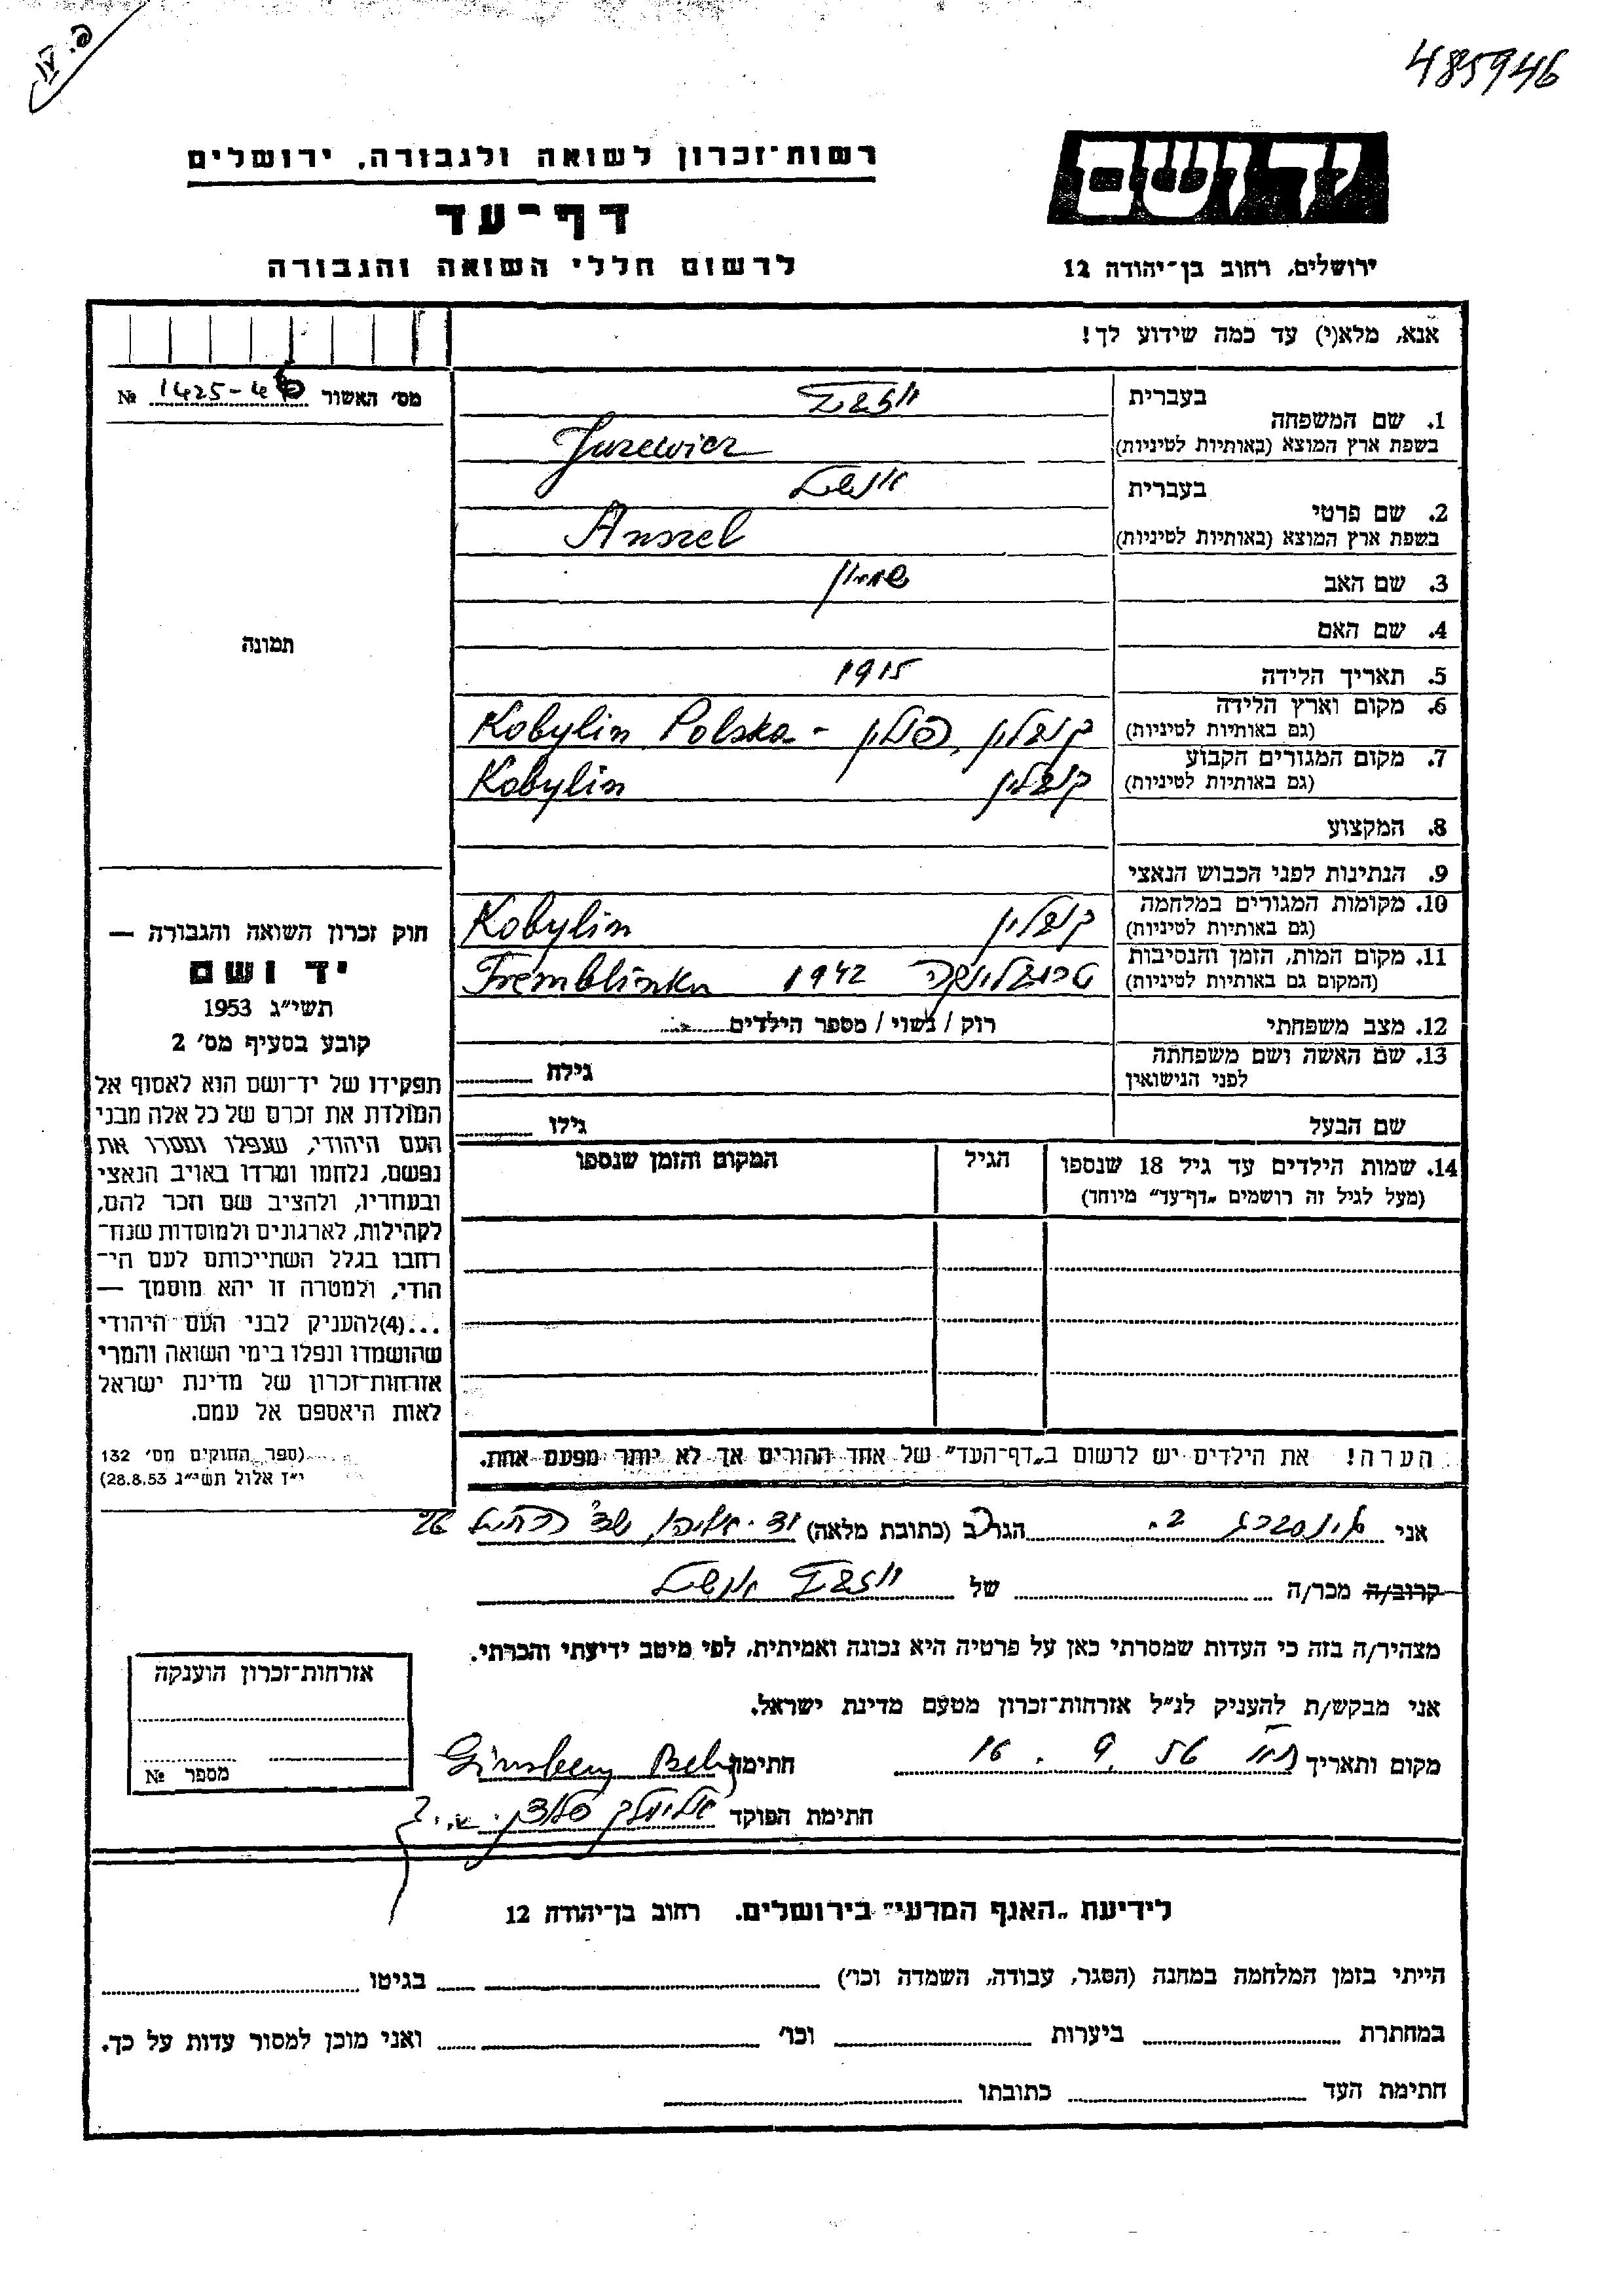 485946
ידושם
רשות־זכרון לשואה ולגבורה, ירושלים
דף־עד
לרשום חללי השואה והגבורה
ירושלים, רחוב בן־יהודה 12
אנא, מלא(י) עד כמה שידוע לך!
מס׳ האשור 1425-46 №
תמונה
בעברית
1. שם המשפחה
בשפת ארץ המוצא (באותיות לטיניות) Jurewicz
בעברית אנשל
2. שם פרטי
בשפת ארץ המוצא (באותיות לטיניות) Anszel
3. שם האב שמעון
4. שם האם
5. תאריך הלידה 1915
6. מקום וארץ הלידה
(גם באותיות לטיניות) קובילין, פולין - Kobylin Polska
7. מקום המגורים הקבוע
(גם באותיות לטיניות) קובילין Kobylin
8. המקצוע
9. הנתינות לפני הכבוש הנאצי
10. מקומות המגורים במלחמה
(גם באותיות לטיניות) קובילין Kobylin
11. מקום המות, הזמן והנסיבות
(המקום גם באותיות לטיניות) טרובלינקה 1942 Tremblinka
12. מצב משפחתי רוק / נשוי / מספר הילדים
13. שם האשה ושם משפחתה
לפני הנישואין גילה
שם הבעל גילו
14. שמות הילדים עד גיל 18 שנספו הגיל המקום והזמן שנספו
(מעל לגיל זה רושמים „דף־עד" מיוחד)
הערה! את הילדים יש לרשום ב„דף־העד" של אחד ההורים אך לא יותר מפעם אחת.
חוק זכרון השואה והגבורה —
יד ושם
תשי״ג 1953
קובע בסעיף מס׳ 2
תפקידו של יד־ושם הוא לאסוף אל
המולדת את זכרם של כל אלה מבני
העם היהודי, שנפלו ומסרו את
נפשם, נלחמו ומרדו באויב הנאצי
ובעוזריו, ולהציב שם וזכר להם,
לקהילות, לארגונים ולמוסדות שנח־
רבו בגלל השתייכותם לעם הי־
הודי, ולמטרה זו יהא מוסמך —
...(4)להעניק לבני העם היהודי
שהושמדו ונפלו בימי השואה והמרי
אזרחות־זכרון של מדינת ישראל
לאות היאספם אל עמם.
(ספר החוקים מס׳ 132
י״ז אלול תשי״ג 28.8.53)
אני גינסברג ב. הגר ב (כתובת מלאה)
קרוב/ה מכר/ה של אנשל
מצהיר/ה בזה כי העדות שמסרתי כאן על פרטיה היא נכונה ואמיתית, לפי מיטב ידיעתי והכרתי.
אני מבקש/ת להעניק לנ״ל אזרחות־זכרון מטעם מדינת ישראל.
מקום ותאריך 16.9.56 חתימה Ginsberg
חתימת הפוקד אלימלך
אזרחות־זכרון הוענקה
מספר №
לידיעת „האגף המדעי" בירושלים. רחוב בן־יהודה 12
הייתי בזמן המלחמה במחנה (הסגר, עבודה, השמדה וכו׳) בגיטו
במחתרת ביערות וכו׳ ואני מוכן למסור עדות על כך.
חתימת העד כתובתו